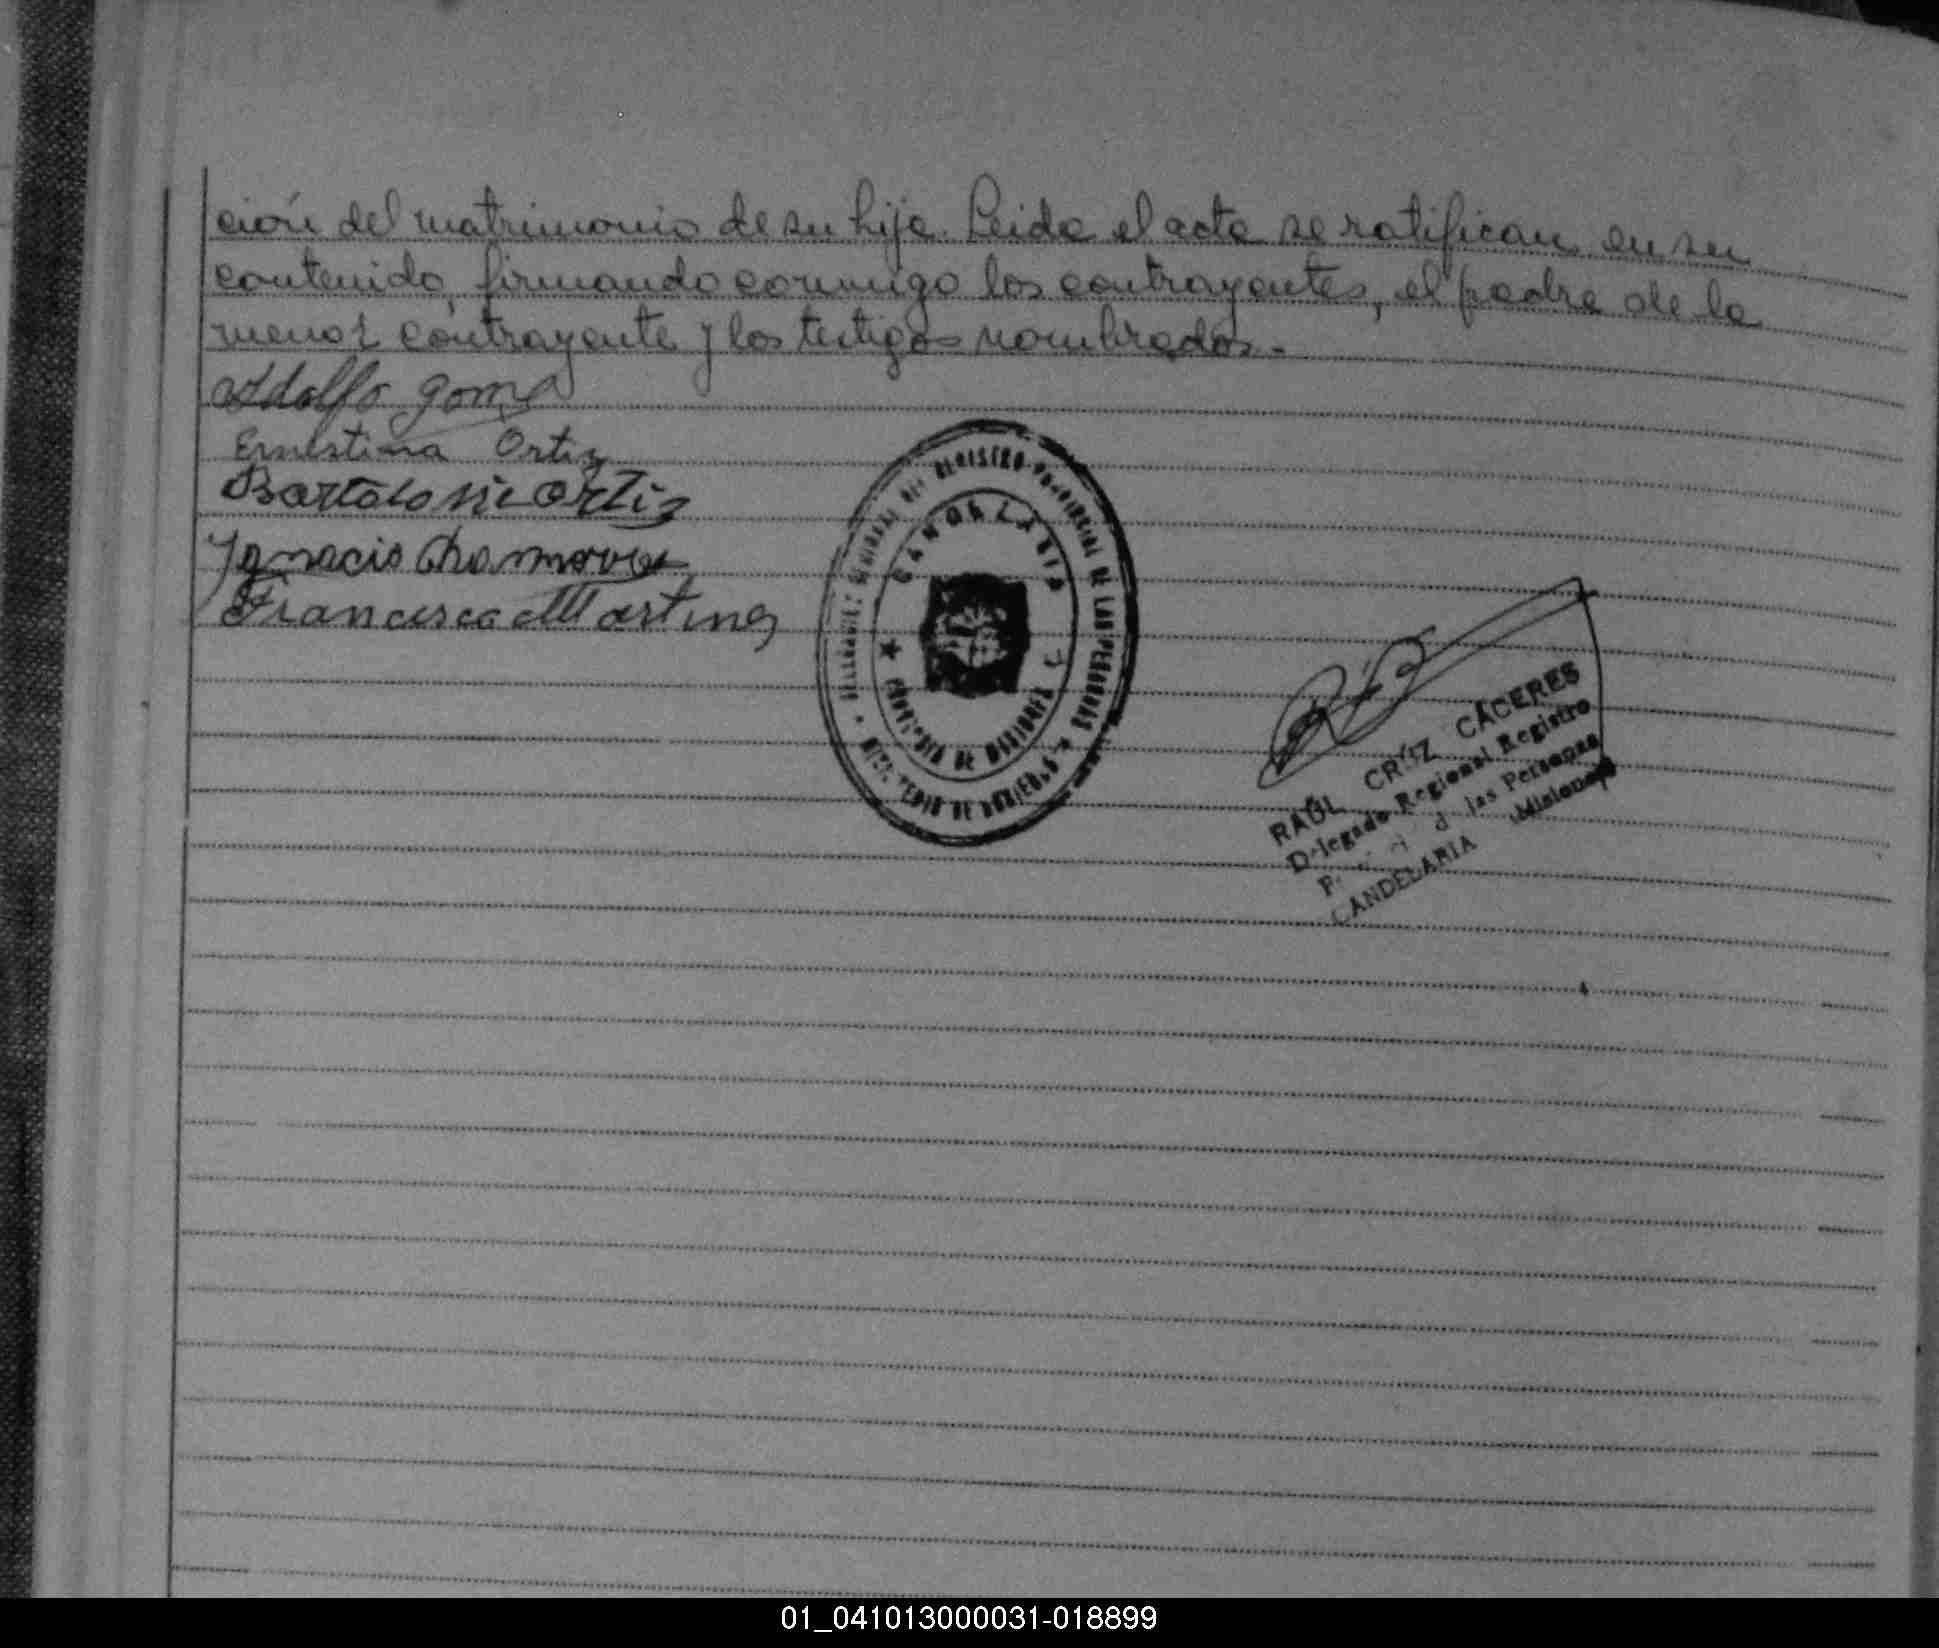 ción del matrimonio de su hija. Leida el acta se ratifican en su
contenido, firmando conmigo los contrayentes, el padre de la
menor contrayente y los testigos nombrados.-
Adolfo Gome
Ernestina Ortiz
Bartolome Ortiz
Ygnacio
Francisca Martinez
REGISTRO PROVINCIAL DE LAS PERSONAS
MINISTERIO DE GOBIERNO
CANDELARIA
PROVINCIA DE MISIONES
RAÚL CRUZ CÁCERES
Delegado Regional Registro
las Personas
CANDELARIA Misiones
01_041013000031-018899